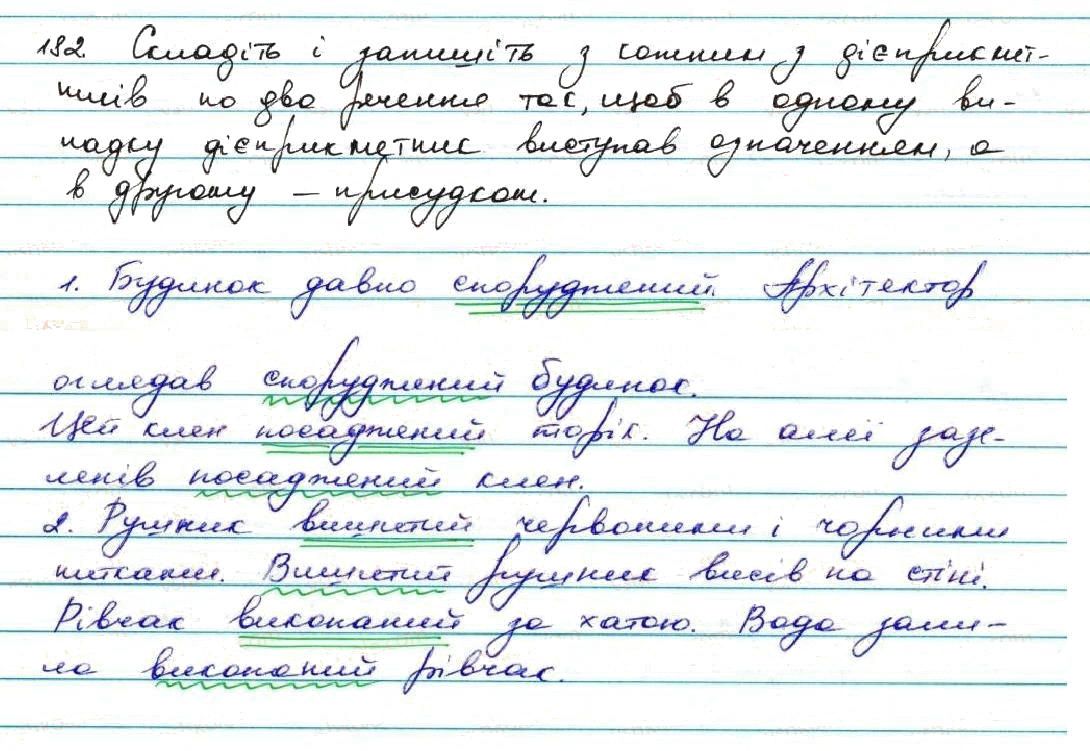 192. Складіть і запишіть з кожним з дієприкмет-
ників по два речення так, щоб в одному ви-
падку дієприкметник виступав означенням, а
в другому – присудком.
1. Будинок давно споруджений. Архітектор
оглядав споруджений будинок.
Цей клен посаджений торік. На алеї зазе-
ленів посаджений клен.
2. Рушник вишитий червоними і чорними
нитками. Вишитий рушник висів на стіні.
Рівчак викопаний за хатою. Вода зали-
ла викопаний рівчак.